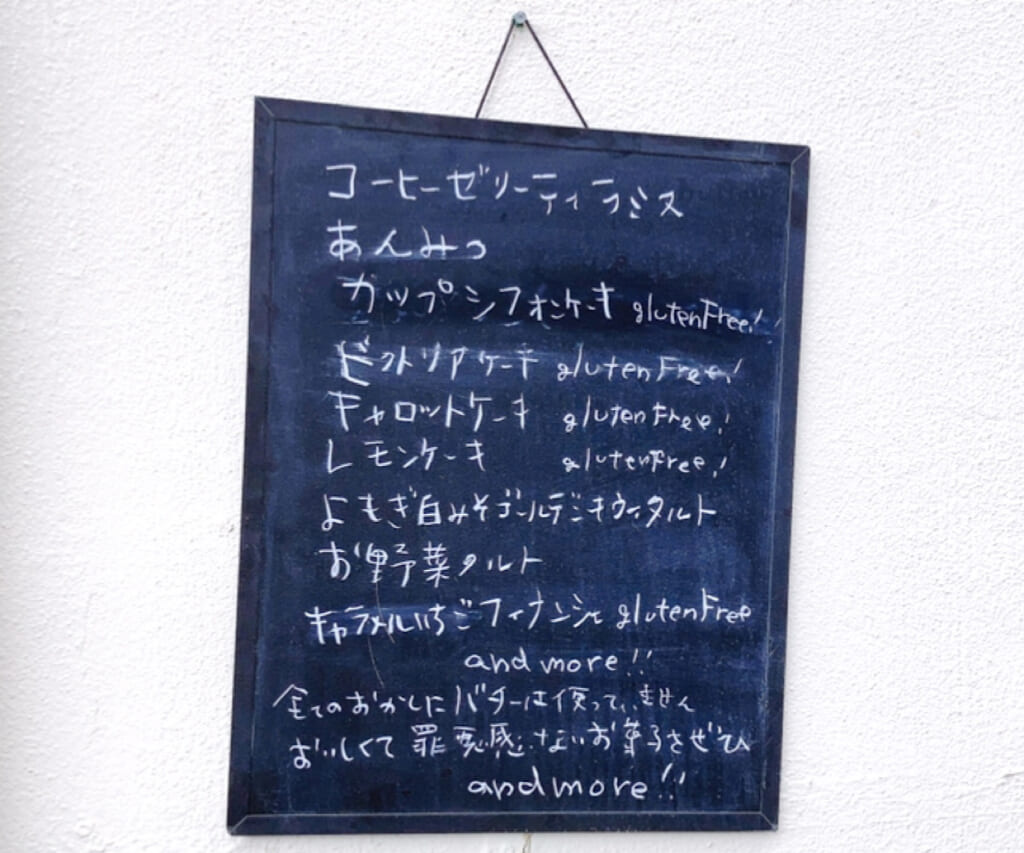 コーヒーゼリーティラミス
あんみつ
カップシフォンケーキ glutenFree!
ビクトリアケーキ gluten Free!
キャロットケーキ gluten Free!
レモンケーキ glutenFree!
よもぎ白みそゴールデンキウイタルト
お野菜タルト
キャラメルいちごフィナンシェ glutenFree
and more!!
全てのおかしにバターは使っていません
おいしくて罪悪感ないお菓子をぜひ
and more!!